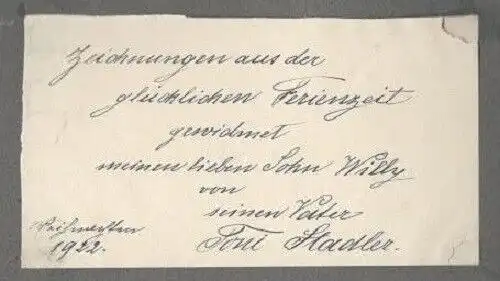 Zeichnungen aus der
glücklichen Ferienzeit
gewidmet
meinen lieben Sohn Willy
von
seinen Vater
Toni Stadler.
Weihnachten
1922.